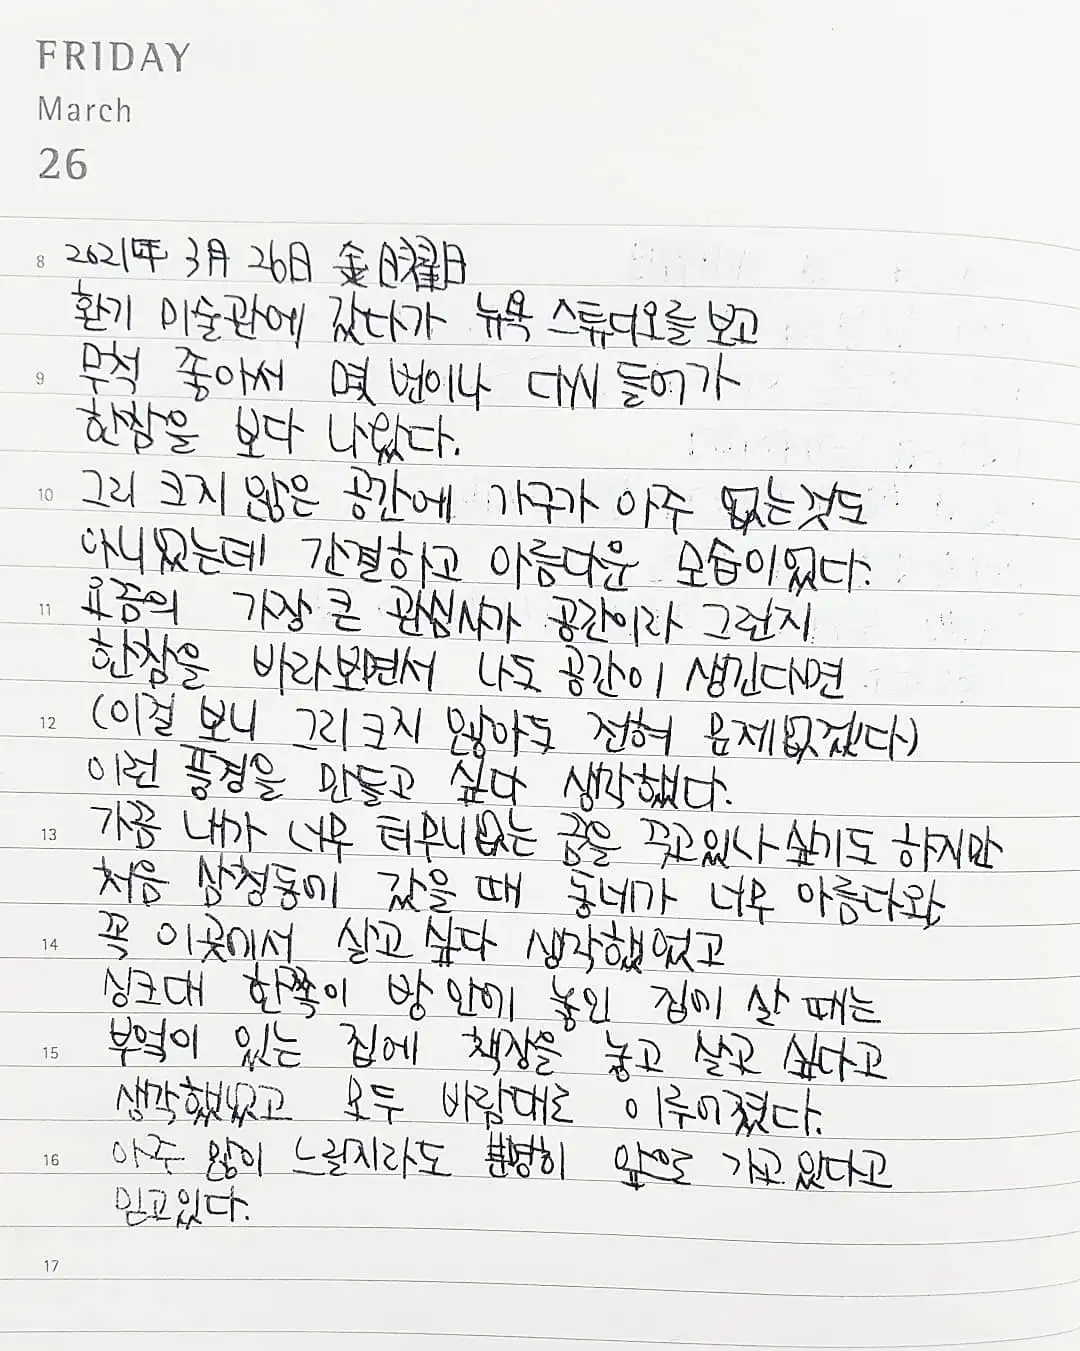 FRIDAY
March
26
8 2021年 3月 26日 金曜日
환기 미술관에 갔다가 뉴욕 스튜디오를 보고
9 무척 좋아서 몇 번이나 다시 들어가
한참을 보다 나왔다.
10 그리 크지 않은 공간에 가구가 아주 없는것도
아니었는데 간결하고 아름다운 모습이었다.
11 요즘의 가장 큰 관심사가 공간이라 그런지
한참을 바라보면서 나도 공간이 생긴다면
12 (이걸 보니 그리 크지 않아도 전혀 문제없겠다)
이런 풍경을 만들고 싶다 생각했다.
13 가끔 내가 너무 터무니없는 꿈을 꾸고있나 싶기도 하지만
처음 삼청동에 갔을 때 동네가 너무 아름다와
14 꼭 이곳에서 살고 싶다 생각했었고
싱크대 한쪽이 방 안에 놓인 집에 살 때는
15 부엌이 있는 집에 책장을 놓고 살고 싶다고
생각했었고 모두 바람대로 이루어졌다.
16 아주 많이 느릴지라도 분명히 앞으로 가고있다고
믿고있다.
17